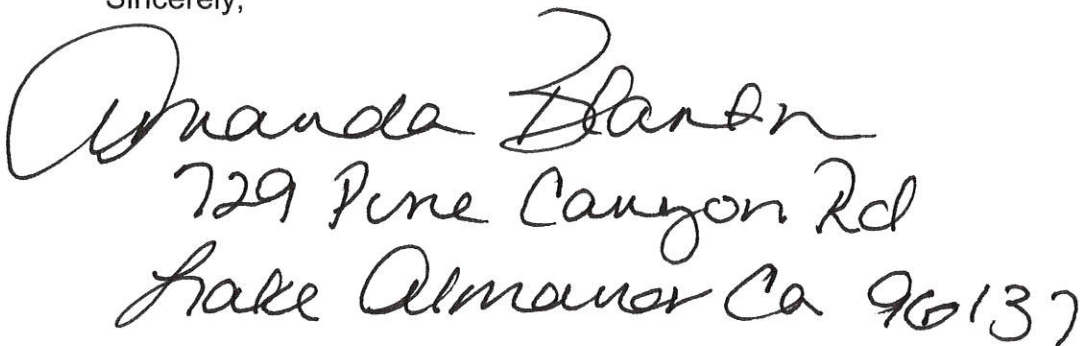 Sincerely,
Amanda Blanton
729 Pine Canyon Rd
Lake Almanor Ca 96137